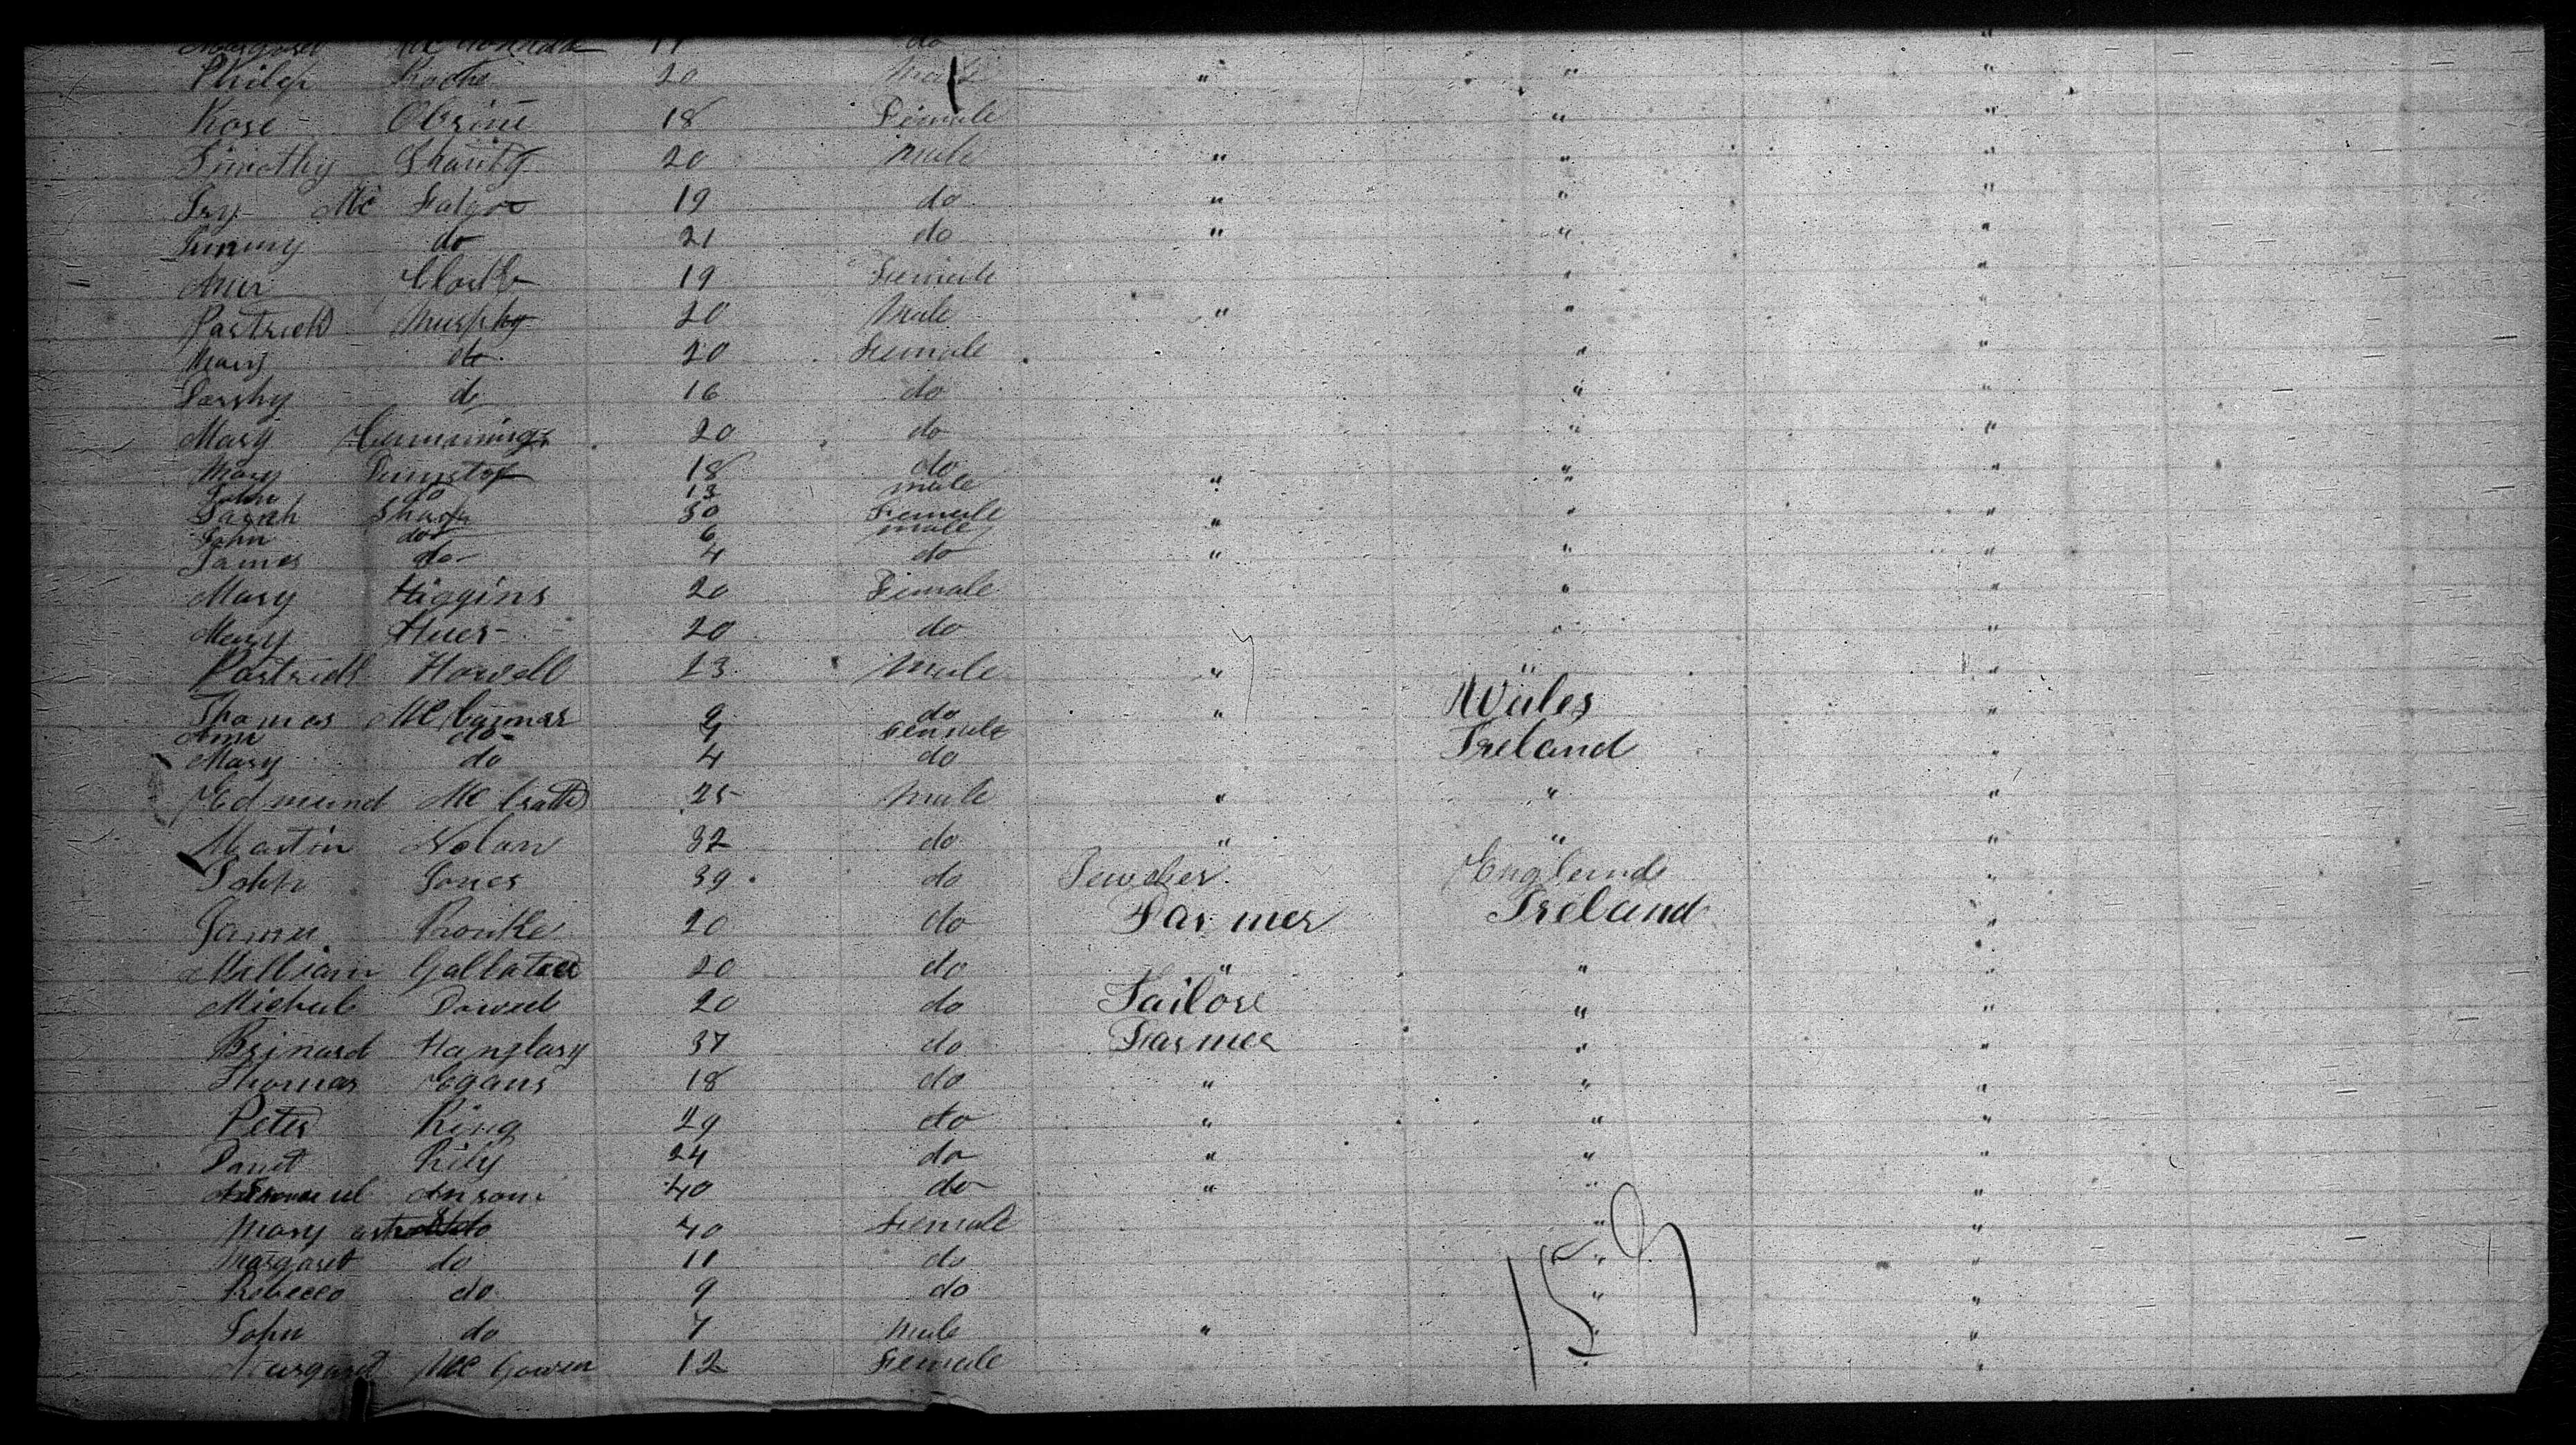 Philip Roche 20 Male " " "
Rose Obrine 18 Female " "
Timothy 20 Male " " "
Mc 19 do " " "
21 do " " "
Ann Clark 19 Female " "
Partrick Murphy 20 Male " " "
Mary do 20 Female " "
do 16 do " "
Mary Cummings 20 do " "
Mary 18 do " "
John do 13 male "
Sarah Sharp 30 Female " "
John do 6 male "
James do 4 do " " "
Mary Higgins 20 Female " "
Mary Hues 20 do " "
Partrick Howell 23 Male " " "
Thomas Mc 9 do " Wales "
Ann do Female
Mary do 4 do Ireland "
Edmund Mc Crath 25 Male " " "
Martin Nolan 32 do " " "
John Jones 39 do England "
James Rourke 20 do Farmer Ireland "
William 20 do " " "
Michael Dowel 20 do Tailore " "
Brinard 37 do Farmer " "
Thomas Egans 18 do " " "
Peter King 29 do " " "
Rily 24 do " " "
40 do " " "
Mary do 40 Female " "
Margaret do 11 do " "
Rebecco do 9 do " "
John do 7 Male " " "
Margaret Mc Gowen 12 Female " "
159